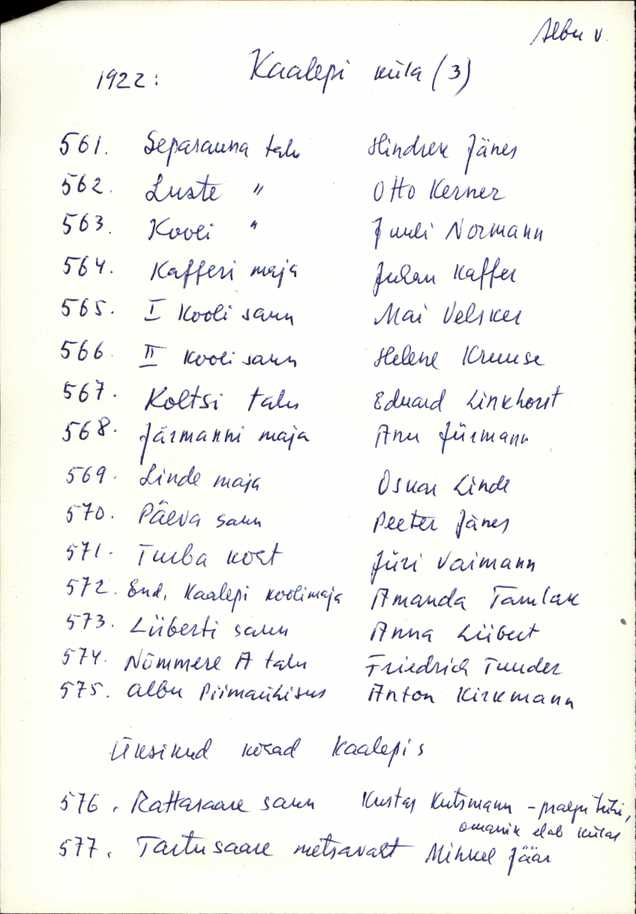 Albu v.
1922: Kaalepi küla (3)
561. Separauna talu Hindrek Jänes
562. Luste " Otto Kerner
563. Kooli " Juuli Normann
564. Kafferi maja Juhan Kaffer
565. I Kooli saun Mai Velsker
566. II Kooli saun Helene Kruuse
567. Koltsi talu Eduard Linkhorst
568. Järmanni maja Anu Jürmann
569. Linde maja Oskar Linde
570. Päeva saun Peeter Jänes
571. Turba koht Jüri Vaimann
572. End. Kaalepi koolimaja Amanda Tamlak
573. Lüberti saun Anna Lübert
574. Nõmmere A talu Friedrich Tunder
575. Albu Piimaühisus Anton Kirkmann
Üksikud kohad Kaalepis
576. Rattasaare saun Kustas Kutsmann - praegu tühi,
omanik elab külas
577. Tartusaare metsavaht Mihkel Jäär